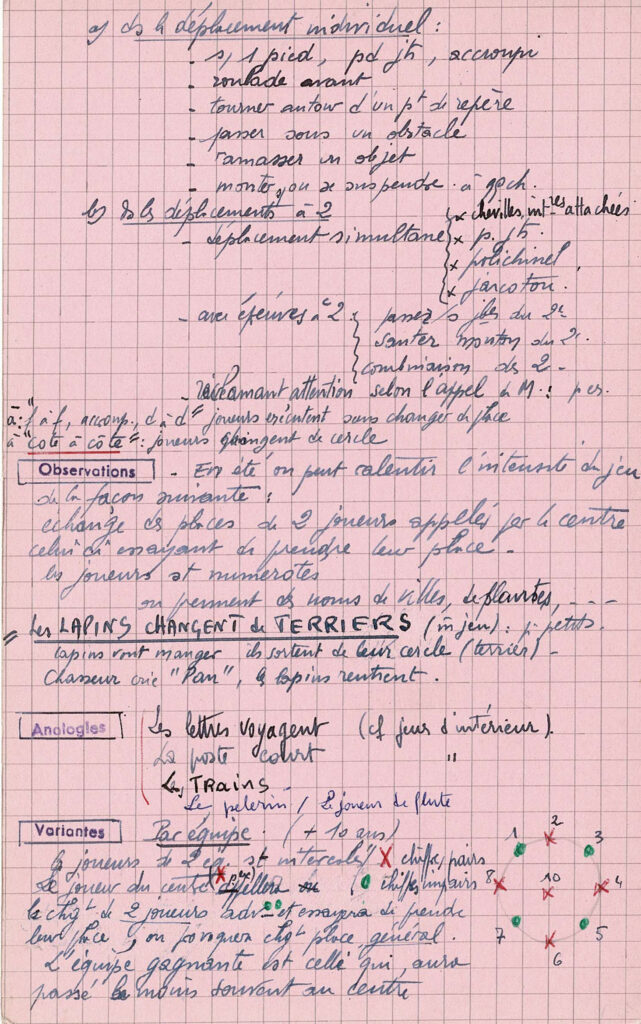 a) ds le déplacement individuel :
- s/ 1 pied, pd jts, accroupi
- roulade avant
- tourner autour d'un pt de repère
- passer sous un obstacle
- ramasser un objet
- monter, ou se suspendre à qqch.
b) ds les déplacements à 2
- déplacement simultané { x chevilles, int res attachées
x p. jts
x polichinel
x jarcoton.
- avec épreuves à 2 : { passer s/ jbes du 2e
sauter mouton du 2e
combinaison des 2 -
- réclamant attention selon l'appel du M. : p ex.
à : "f à f, accoup., d à d" joueurs exécutent sans changer de place
à "côte à côte" : joueurs changent de cercle
Observations - En été on peut ralentir l'intensité du jeu
de la façon suivante :
échange des places de 2 joueurs appelés par le centre
celui ci essayant de prendre leur place -
les joueurs st numérotés
ou prennent des noms de villes, de plantes, ----
" Les LAPINS CHANGENT de TERRIERS (m jeu) : p. petits.
lapins vont manger ils sortent de leur cercle (terrier) -
Chasseur crie "Pan", les lapins rentrent.
Analogies Les lettres voyagent (cf jeux d'intérieur).
La poste court "
Les TRAINS -
Le pelerin / Le joueur de flute
Variantes Par équipe. (+ 10 ans)
les joueurs de 2 éq. st intercalés X chiffres pairs
Le joueur du centre appellera O chiffres impairs
le chgt de 2 joueurs adv. et essayera de prendre
leur place, ou provoquera chgt place général.
L'équipe gagnante est celle qui aura
passé le moins souvent au centre
1 2 3
8 10 4
7 6 5